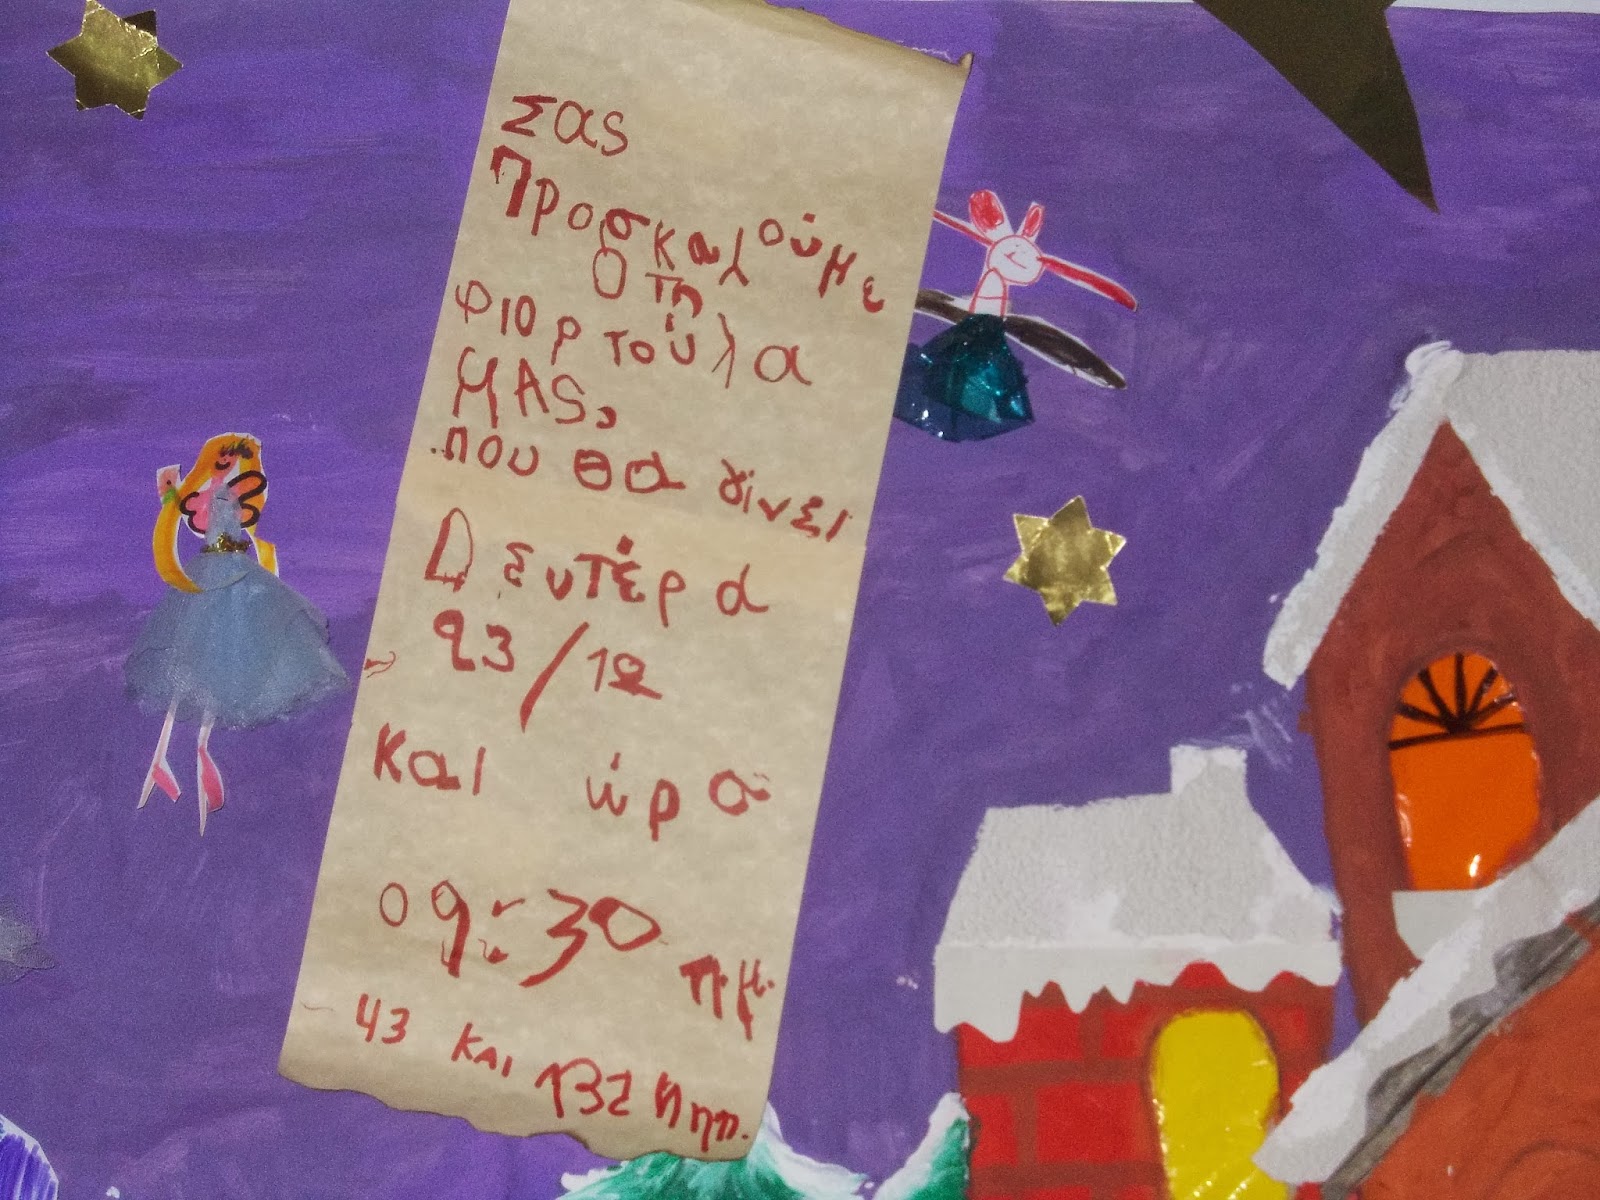 Σας
Προσκαλούμε
στη
φιορτούλα
μΑς,
που θα γίνει
Δευτέρα
23/12
και ώρα
09:30 π.μ.
43 και 132 Νηπ.